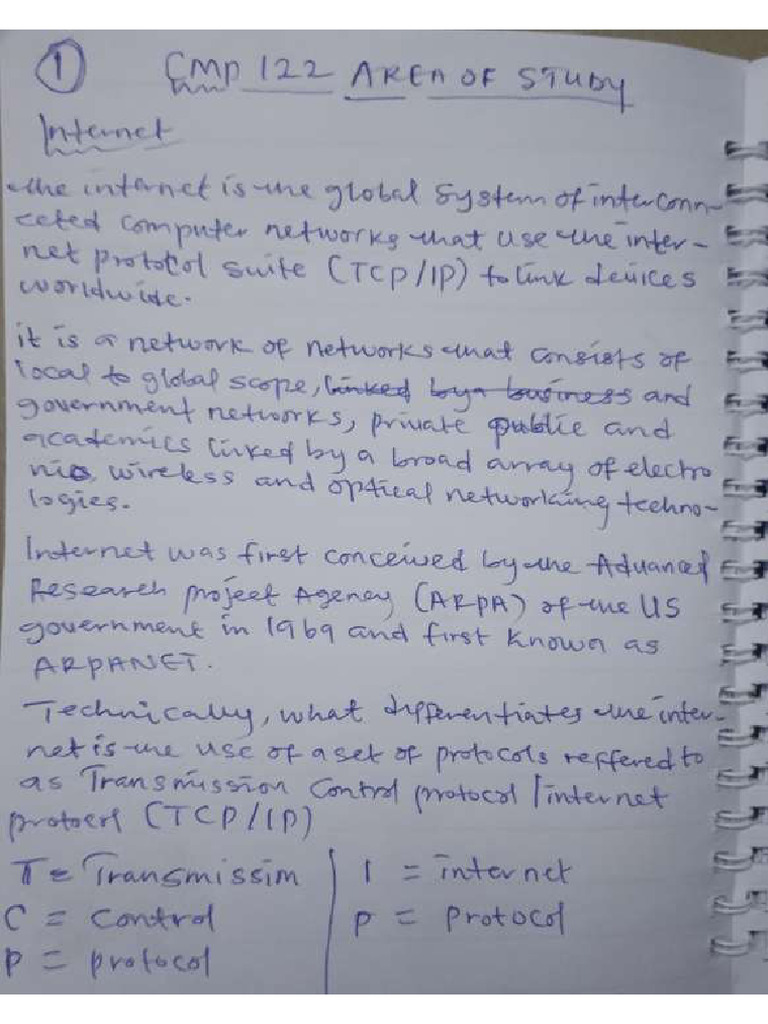 1 CMP 122 AREA OF STUDY
Internet
The internet is the global system of interconn-
ected computer networks that use the inter-
net protocol suite (TCP/IP) to link devices
worldwide.
it is a network of networks that consists of
local to global scope, linked by a business and
government networks, private public and
academics linked by a broad array of electro
nic, wireless and optical networking techno-
logies.
Internet was first conceived by the Advanced
Research project Agency (ARPA) of the US
government in 1969 and first known as
ARPANET.
Technically, what differentiates the inter-
net is the use of a set of protocols reffered to
as Transmission Control protocol/internet
protocol (TCP/IP)
T = Transmission | I = internet
C = Control | P = Protocol
P = protocol